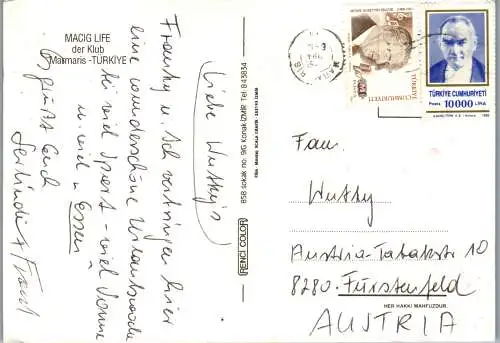 MACIG LIFE
der Klub
Marmaris -TÜRKİYE
Liebe Wuttys!
Franky u. ich verbringen hier
eine wunderschöne Urlaubswoche
mit viel Sport - viel Sonne
u. viel Essen
Es grüßt Euch
Gerlinde + Frank
858 sokak no: 9/G Konak-İZMİR Tel 845834
RENCİ COLOR
TÜRKİYE
CUMHURİYETİ
MARMARİS
TÜRKİYE CUMHURİYETİ
Posta 10000 LİRA
Fam.
Wutty
Austria-Tabakstr 10
8280 Fürstenfeld
AUSTRIA
HER HAKKI MAHFUZDUR.